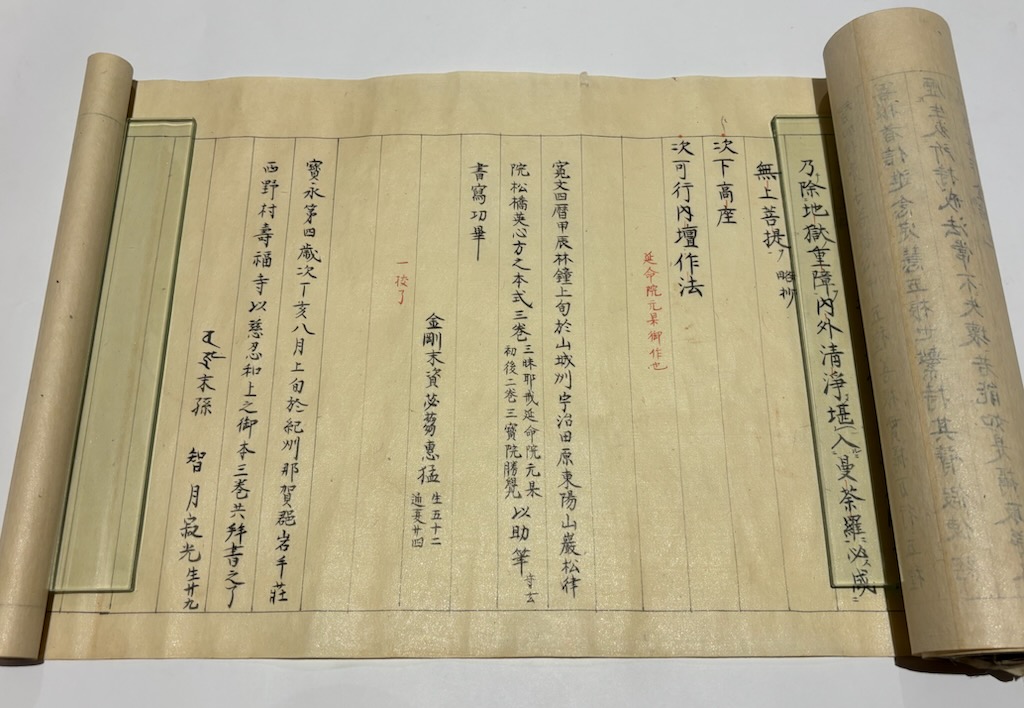 乃除地獄重障内外清淨堪入曼荼羅必成
無上菩提 略抄
次下高座
次可行内壇作法
延命院元杲御作也
寛文四暦甲辰林鐘上旬於山城州宇治田原東陽山巖松律
院松橋英心方之本式三巻 三昧耶戒延命院元杲 初後二巻三寶院勝覺 以助筆
書寫功畢
金剛末資苾蒭惠猛 生五十二 通夏廿四
一校了
寶永第四歳次丁亥八月上旬於紀刕那賀郡岩手莊
西野村壽福寺以慈忍和上之御本三巻共拜書之了
末孫 智月寂光 生廿九